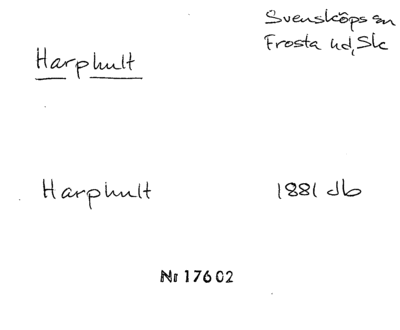 Svensköps sn
Frosta hd, Sk
Harphult
Harphult 1881 db
Nr 17602